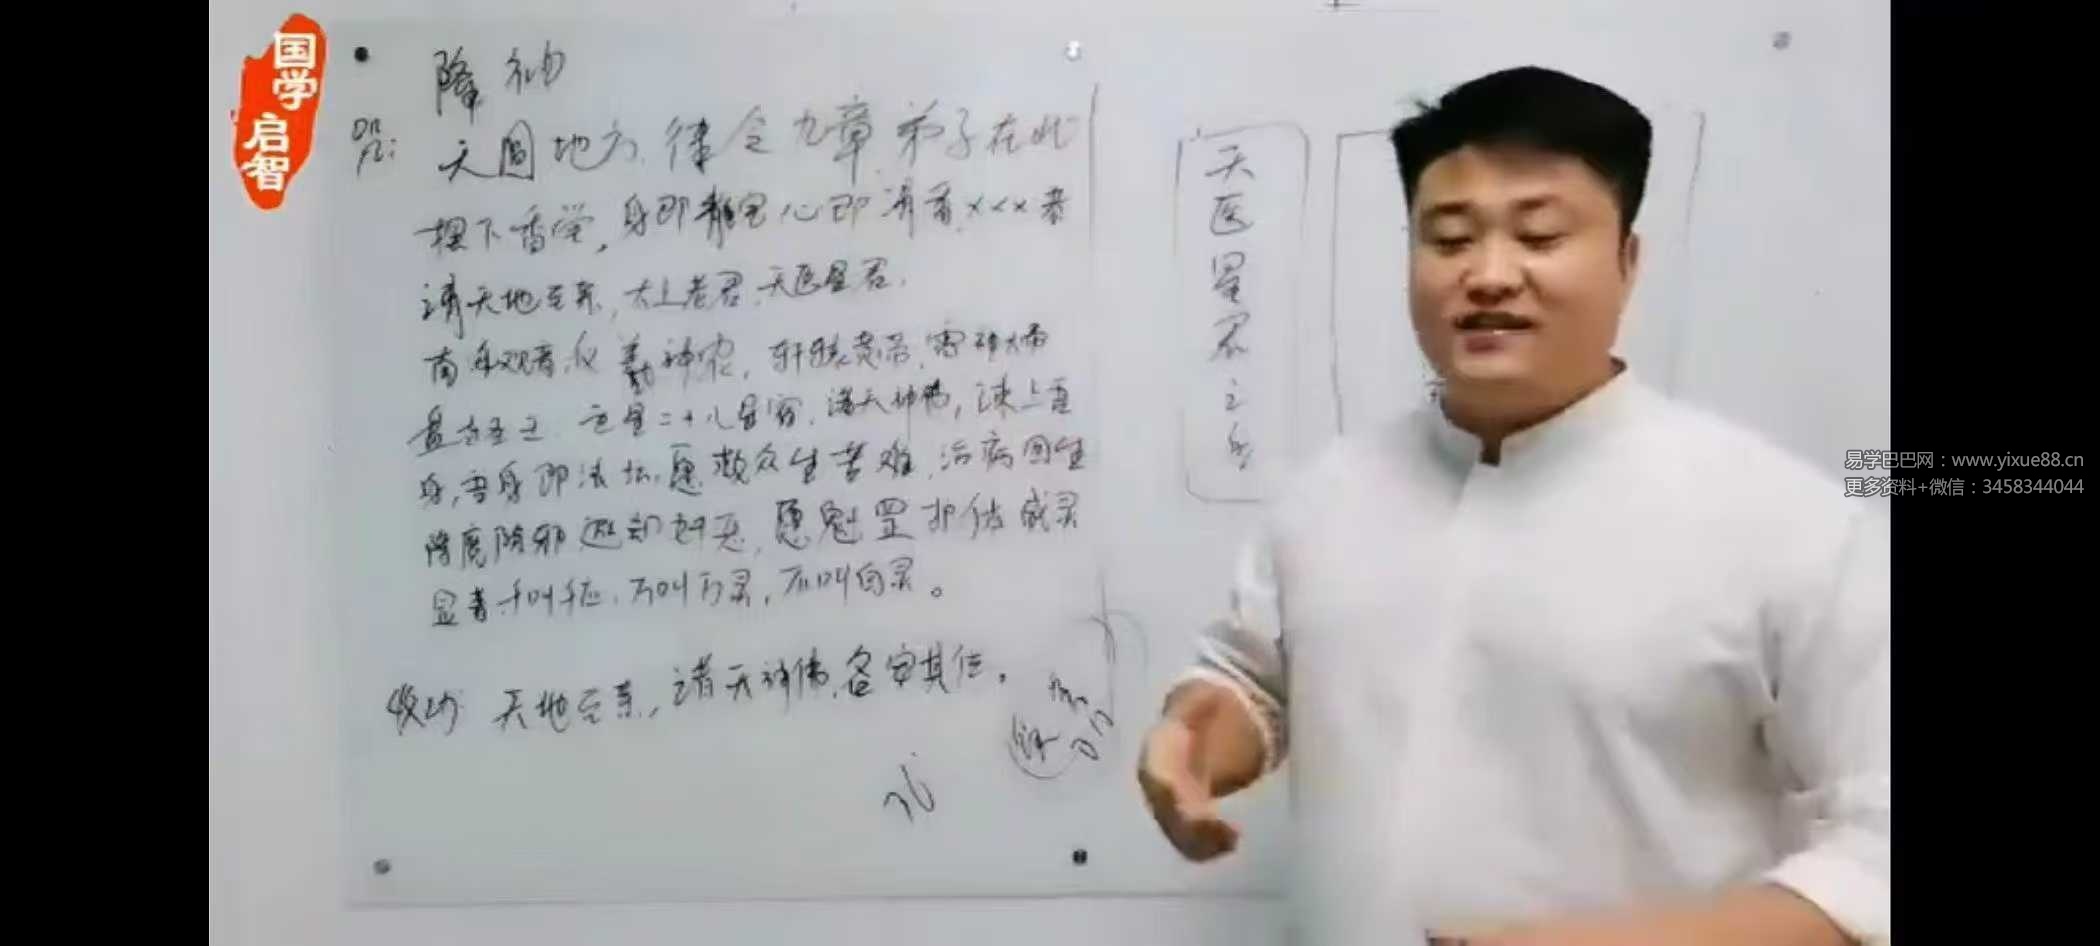 国学
启智
降神
咒:
天圆地方 律令九章 弟子在此
摆下香堂,身即 心即清香 xxx恭
请天地至尊,太上老君、天医星君,
南无观音 伏羲神农,轩辕黄帝,雷神大帝
二十八星宿,诸天神佛,速上吾
身,吾身即法坛,愿救众生苦难,治病回生
降魔除邪 愿魁罡护佑 威灵
显著 千叫千应,万叫万灵,不叫自灵。
收功: 天地至尊,诸天神佛,各安其位。
天医星君之
易学巴巴网:www.yixue88.cn
更多资料+微信:3458344044